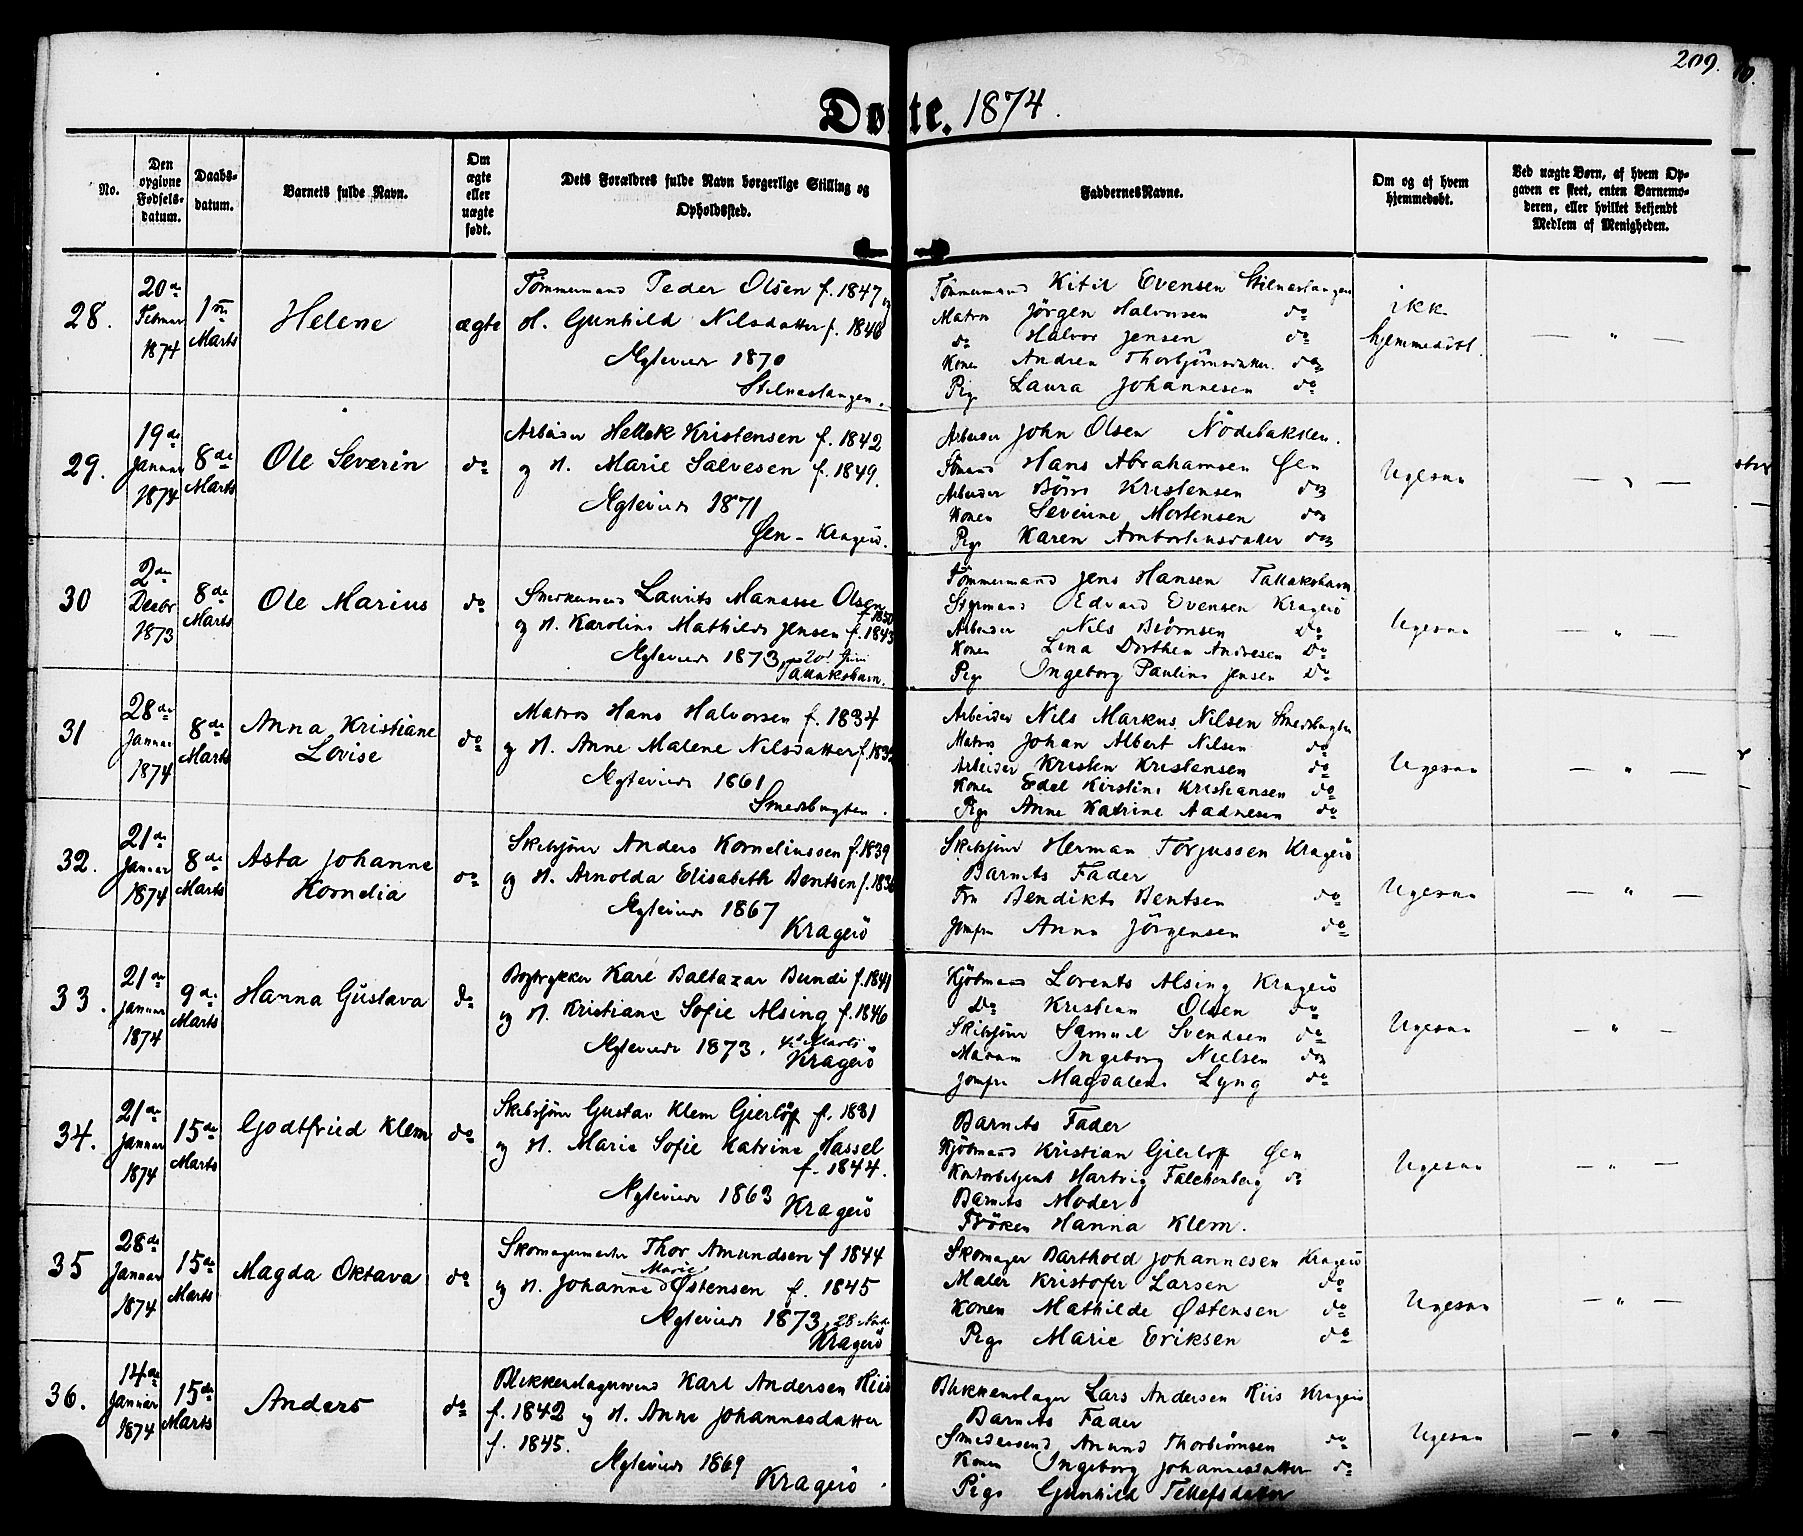 209.
Døbte. 1874.
No.
Den opgivne Fødselsdatum.
Daabsdatum.
Barnets fulde Navn.
Om ægte eller uægte født.
Dets Forældres fulde Navn borgerlige Stilling og Opholdssted.
Faddernes Navne.
Om og af hvem hjemmedøbt.
Ved uægte Børn, af hvem Opgaven er skeet, enten Barnemoderen, eller hvilket bekjendt Medlem af Menigheden.
28.
20de Februar 1874
1ste Marts
Helene
ægte
Tømmermand Peder Olsen f. 1847 og
H. Gunhild Nilsdatter f. 1846
Ægteviede 1870
Stilnestangen.
Tømmermand Kitil Evensen Stilnestangen
Matros Jörgen Halvorsen do
do Halvor Jensen do
Konen Andrea Thorbjörnsdatter do
Pige Laura Johannesen do
ikke
hjemmedöbt.
— " —
29.
19de Januar 1874
8de Marts
Ole Severin
do
Arbeider Hellek Kristensen f. 1842
og H. Marie Salvesen f. 1849.
Ægteviede 1871
Öen - Kragerö.
Arbeider John Olsen Nödebakken.
Sömand Hans Abrahamsen Öen
Arbeider Börre Kristensen do
Konen Severine Mortensen do
Pige Karen do
Ligesaa
— " —
30
2den Decbr 1873
8de Marts
Ole Marius
do
Laurits Manasse Olsen f. 1850
og H. Karoline Mathilde Jensen f. 1843
Ægteviede 1873 20d Juni
Tallakshavn.
Tømmermand Jens Hansen Tallakshavn
Styrmand Edvard Evensen Kragerö
Arbeider Nils Biörnsen Do
Konen Lina Dorthea Andresen Do
Pige Ingeborg Pauline Jensen Do
Ligesaa
— " —
31
28de Januar 1874
8de Marts
Anna Kristiane
Lovise
do
Matros Hans Halvorsen f. 1834
og H. Anne Malene Nilsdatter f.
Ægteviede 1861
Smedsbugten.
Arbeider Nils Markus Nilsen Smedsbugten
Matros Johan Albert Nilsen do
Arbeider Kristen Kristensen do
Konen Edel Kirstine Kristiansen do
Pige Anne Katrine Aadnesen do
Ligesaa
— " —
32.
21de Januar 1874
8de Marts
Asta Johanne
Kornelia
do
Skibsförer Anders Korneliussen f. 1839
og H. Arnolda Elisabeth Bentsen f.
Ægteviede 1867
Kragerö
Skibsförer Herman Torjussen Kragerö
Barnets Fader
Fru Bendikte Bentsen do
Jomfru Anna Jörgensen do
Ligesaa
— " —
33.
21de Januar 1874
9de Marts
Hanna Gustava
do
Bogtrykker Karl Baltazar Bundi f. 1841
og H. Kristiane Sofie Alsing f. 1846
Ægteviede 1873. Marts
Kragerö
Kjöbmand Lorents Alsing Kragerö
Do Kristian Olsen do
Skibsförer Samuel Svendsen do
Madam Ingeborg Nielsen do
Jomfru Magdalene Lyng do
Ligesaa
— " —
34.
21de Januar 1874
15de Marts
Godtfried Klem
do
Skibsförer Gustav Klem Gierlöff f. 1831
og H. Marie Sofie Katrine Hassel
f. 1844.
Ægteviede 1863 Kragerö
Barnets Fader
Kjöbmand Kristian Gierlöff Öen
Kontorbetjent Hartvig Falchenberg do
Barnets Moder
Fröken Hanna Klem.
Ligesaa
— " —
35
28de Januar 1874
15de Marts
Magda Oktava
do
Skomagermester Thor Amundsen f 1844
og H. Johanne Marie Østensen f. 1845
Ægteviede 1873, 28 Nov.
Kragerö
Skomager Barthold Johannesen Kragerö
Maler Kristofer Larsen do
Konen Mathilde Østensen do
Pige Marie Eriksen do
Ligesaa
— " —
36.
14de Januar 1874
15de Marts
Anders
do
Blikkenslagersvend Karl Andersen Riis
f. 1842 og H. Anne Johannesdatter
f. 1845.
Ægteviede 1869
Kragerö.
Blikkenslager Lars Andersen Riis Kragerö
Barnets Fader
Smedesvend Anund Thorbiörnsen do
Konen Ingeborg Johannesdatter do
Pige Gunhild Tellefsdatter
Ligesaa
— " —